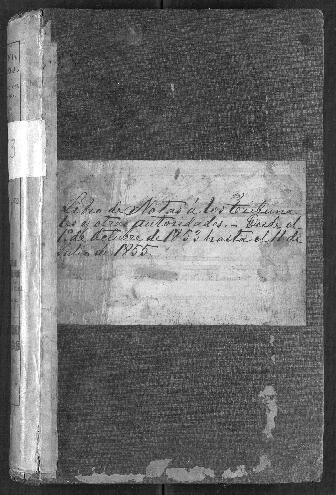 Libro de Notas á los Tribuna
les y otras autoridades. - Desde el
1º de Octubre de 1853 hasta el 11 de
Julio de 1855
3